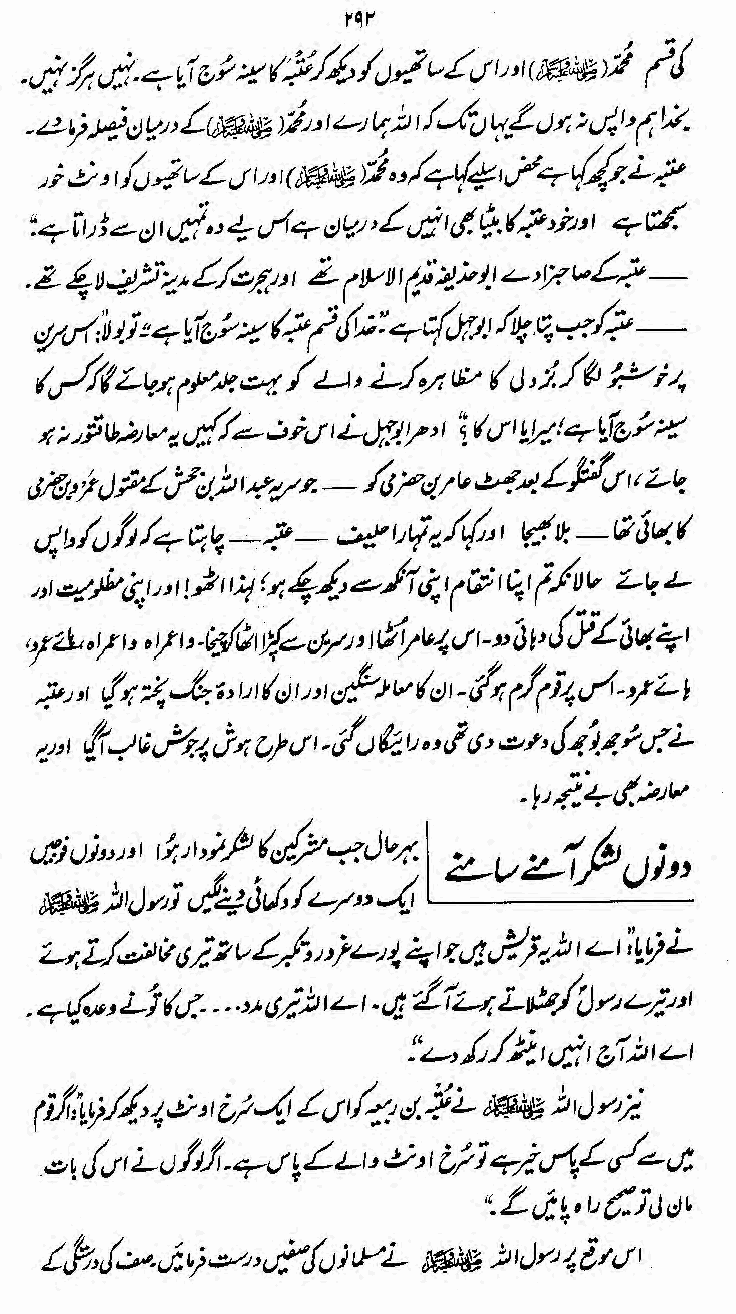 ۲۹۲
کی قسم محمّد (ﷺ) اور اس کے ساتھیوں کو دیکھ کر عُتْبہ کا سینہ سوُج آیا ہے۔ نہیں ہرگز نہیں۔
بخدا ہم واپس نہ ہوں گے یہاں تک کہ اللہ ہمارے اور محمّد (ﷺ) کے درمیان فیصلہ فرما دے۔
عتبہ نے جو کچھ کہا ہے محض اسلیے کہا ہے کہ وہ محمّد (ﷺ) اور اس کے ساتھیوں کو اونٹ خور
سمجھتا ہے اور خود عتبہ کا بیٹا بھی انہیں کے درمیان ہے اس لیے وہ تمہیں ان سے ڈراتا ہے“
—— عتبہ کے صاحبزادے ابوحذیفہ قدیم الاسلام تھے اور ہجرت کر کے مدینہ تشریف لا چکے تھے۔
—— عتبہ کو جب پتا چلا کہ ابوجہل کہتا ہے ”خدا کی قسم عتبہ کا سینہ سوُج آیا ہے“ تو بولا: ”اس سرین
پر خوشبوُ لگا کر بُزدلی کا مظاہرہ کرنے والے کو بہت جلد معلوم ہو جائے گا کہ کس کا
سینہ سوُج آیا ہے؛ میرا یا اس کا؟“ ادھر ابوجہل نے اس خوف سے کہ کہیں یہ معارضہ طاقتور نہ ہو
جائے، اس گفتگو کے بعد جھٹ عامر بن حضرمی کو —— جو سریہ عبد اللہ بن جحش کے مقتول عمرو بن حضرمی
کا بھائی تھا —— بلا بھیجا اور کہا کہ یہ تمہارا حلیف —— عتبہ —— چاہتا ہے کہ لوگوں کو واپس
لے جائے حالانکہ تم اپنا انتقام اپنی آنکھ سے دیکھ چکے ہو؛ لہٰذا اٹھو! اور اپنی مظلومیت اور
اپنے بھائی کے قتل کی دہائی دو۔ اس پر عامر اُٹھا اور سرین سے کپڑا اٹھا کر چیخا۔ واعمراہ واعمراہ، ہائے عمرو،
ہائے عمرو۔ اس پر قوم گرم ہو گئی۔ ان کا معاملہ سنگین اور ان کا ارادۂ جنگ پختہ ہو گیا اور عتبہ
نے جس سُوجھ بُوجھ کی دعوت دی تھی وہ رائیگاں گئی۔ اس طرح ہوش پر جوش غالب آگیا اور یہ
معارضہ بھی بے نتیجہ رہا۔
دونوں لشکر آمنے سامنے
بہرحال جب مشرکین کا لشکر نمودار ہُوا اور دونوں فوجیں
ایک دوسرے کو دکھائی دینے لگیں تو رسول اللہ ﷺ
نے فرمایا: ”اے اللہ یہ قریش ہیں جو اپنے پورے غرور و تکبر کے ساتھ تیری مخالفت کرتے ہوئے
اور تیرے رسولؐ کو جھٹلاتے ہوئے آ گئے ہیں۔ اے اللہ تیری مدد.... جس کا تُونے وعدہ کیا ہے۔
اے اللہ آج انہیں اینٹھ کر رکھ دے“۔
نیز رسول اللہ ﷺ نے عُتْبہ بن ربیعہ کو اس کے ایک سُرخ اونٹ پر دیکھ کر فرمایا: ”اگر قوم
میں سے کسی کے پاس خیر ہے تو سُرخ اونٹ والے کے پاس ہے۔ اگر لوگوں نے اس کی بات
مان لی تو صحیح راہ پائیں گے۔“
اس موقع پر رسول اللہ ﷺ نے مسلمانوں کی صفیں درست فرمائیں۔ صف کی درستگی کے